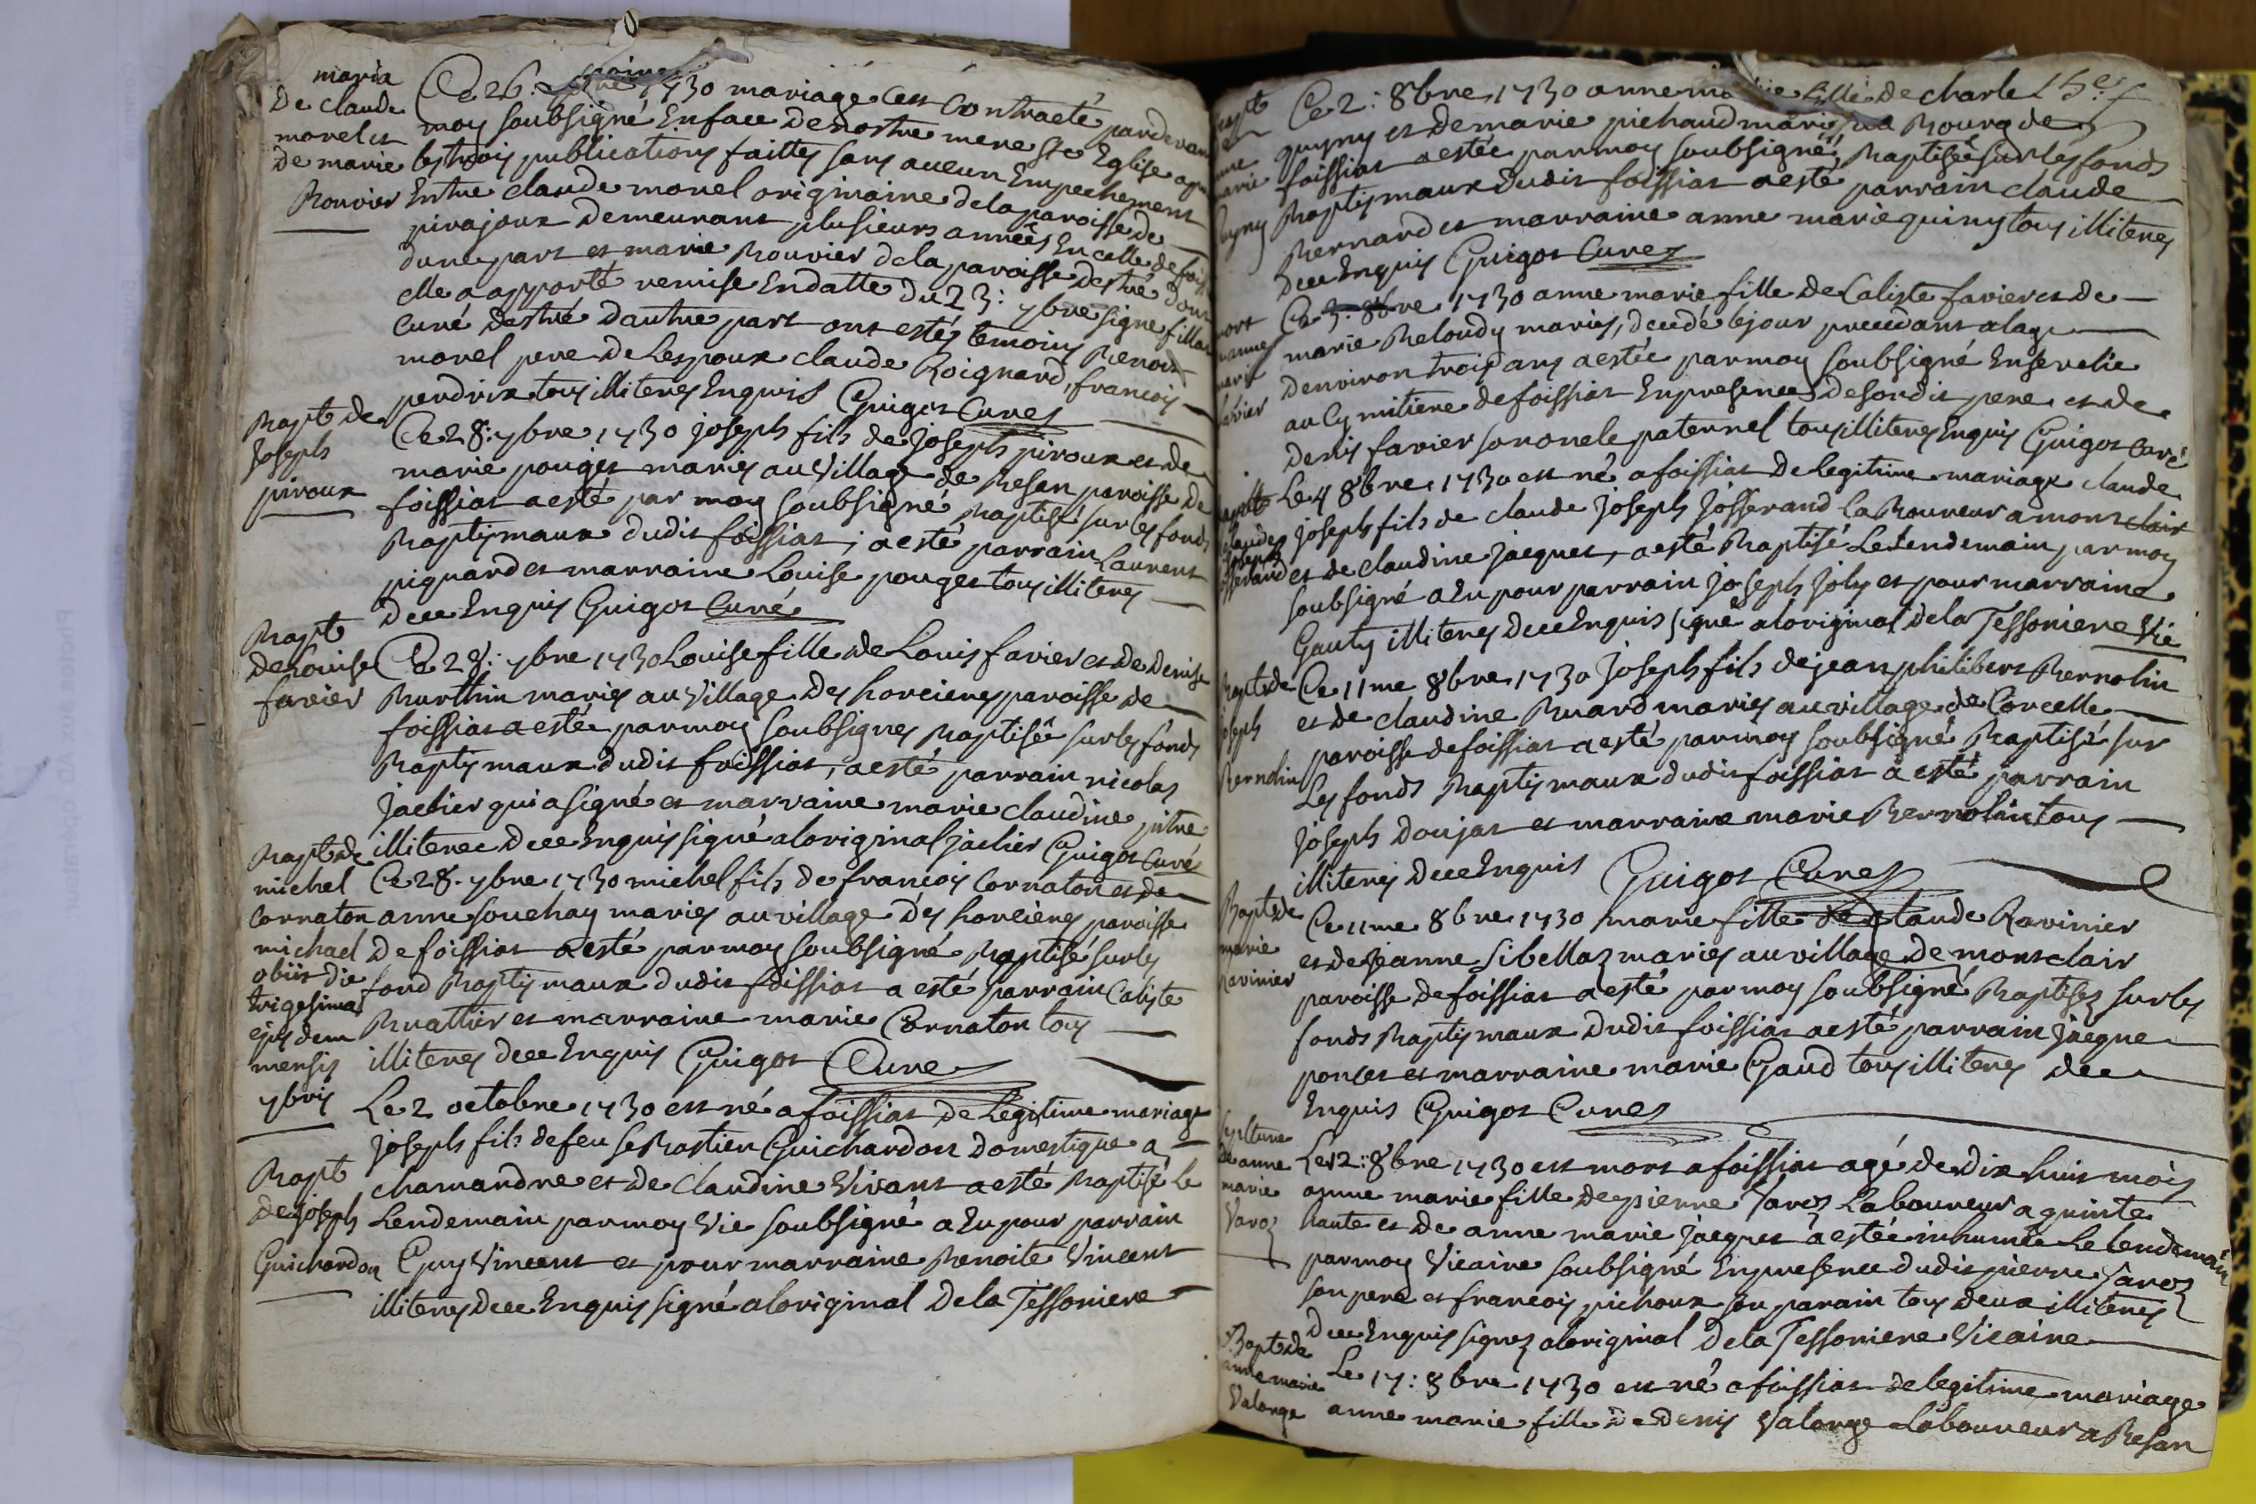 maria
De claude
morel et
de marie
Rouvier
Ce 26: 1730 mariage cest Contracté pardevant
moy soubsigné En face de nostre mere ste Eglise apres
les trois publications faittes sans aucun Empechement
Entre claude morel originaire de la paroisse de
pirajoux demeurant plusieurs années En celle de
dune part et marie Rouvier de la paroisse destré dont
elle a apporté remise En datte du 23: 7bre signe fillon
curé destré dautre part ont estés temoins Benoit
morel pere de Lespoux claude Roignard, francois
perdrix tous illiterés Enquis Guigot Curé
Bapt de
Joseph
piroux
Ce 28: 7bre 1730 joseph fils de joseph piroux et de
marie pouget mariés au village de Besan paroisse de
foissiat a esté par moy soubsigné Baptisé sur les fonds
Baptismaux dudit foissiat; a esté parrain Laurent
piquard et marraine Louise pouget tous illiterés
Dece Enquis Guigot Curé
Bapt
de Louise
favier
Ce 28: 7bre 1730 Louise fille de Louis favier et de Denise
Burthin mariés au village des horcieres paroisse de
foissiat a estée par moy soubsignes Baptisée sur les fonds
Baptismaux dudit foissiat, a esté parrain nicolas
jaclier qui a signé et marraine marie claudine pitre
illiteree Dece Enquis signé aloriginal jaclier Guigot Curé
Bapt de
michel
Cornaton
michael
obiit die
trigesima
ejusdem
mensis
7bris
Ce 28. 7bre 1730 michel fils de francois Cornaton et de
anne souchay mariés au village des horcieres paroisse
de foissiat a esté par moy soubsigné Baptisé sur les
fond Baptismaux dudit foissiat a esté parrain Caliste
Buattier et marraine marie Cornaton tous
illiterés dece Enquis Guigot Cure
Bapt
de joseph
Guichardon
Le 2 octobre 1730 est né a foissiat de Legitime mariage
joseph fils de feu seBastien Guichardon Domestique a
chamandre et de Claudine Vivant a esté Baptisé Le
Lendemain par moy Vic soubsigné a Eu pour parrain
Guy Vincent et pour marraine Benoite Vincent
illiterés dece Enquis signé aloriginal De la Tessoniere
15e f
Bapt
anne
marie
quyny
Ce 2: 8bre 1730 anne marie fille de charle
quyny et de marie pichaud mariés au Bourg de
foissiat a estée par moy soubsigné Baptisée sur les fonds
Baptismaux dudit foissiat a esté parrain claude
Bernard et marraine anne marie quiny tous illiterés
Dece Enquis Guigot Cure
mort
anne
marie
favier
Ce 3: 8bre 1730 anne marie fille de Caliste favier et de
marie Beloudy mariés, decedé le jour precedant alage
denviron trois ans a estée par moy soubsigné Enservelie
au Cymitiere de foissiat En presence de sondit pere et de
denis favier son oncle paternel tous illiterés Enquis Guigot Curé
claude
joseph
josserand
Le 4 8bre 1730 est né a foissiat de legitime mariage claude
joseph fils de claude joseph josserand LaBoureur a mont clair
et de claudine jacquet, a esté Baptisé Le Lendemain par moy
soubsigné a Eu pour parrain joseph joly et pour marraine
Gauty illiterés dece Enquis signé a loriginal de la Tessoniere Vic
Bapt de
joseph
Bernolin
Ce 11me 8bre 1730 joseph fils de jean philibert Bernolin
et de claudine Buard mariés au village de Corcelle
paroisse de foissiat a esté par moy soubsigné Baptisé sur
Les fonds Baptismaux dudit foissiat a esté parrain
joseph Doujat et marraine marie Bernolin tous
illiterés Dece Enquis Guigot Cure
Bapt de
marie
Ravinier
Ce 11me 8bre 1730 marie fille de claude Ravinier
et de jeanne sibellas mariés au village de mont clair
paroisse de foissiat a esté par moy soubsigné Baptisez sur les
fonds Baptismaux dudit foissiat a esté parrain jacque
poncet et marraine marie Gaud tous illiterés dece
Enquis Guigot Cure
sepulture
de anne
marie
Varoz
Le 12: 8bre 1730 est mort a foissiat agé de dix huit mois
anne marie fille de pierre Varoz Laboureur a quinte
haute et de anne marie jacquet a estée inhumée Le lendemain
par moy Vicaire soubsigné En presence dudit pierre Varoz
son pere et francois pichoux son parain tous deux illiterés
Dece Enquis signez aloriginal De la Tessoniere Vicaire
Bapt de
anne marie
Valorge
Le 17: 8bre 1730 est né a foissiat de legitime mariage
anne marie fille de denis Valorge Laboureur a Besan